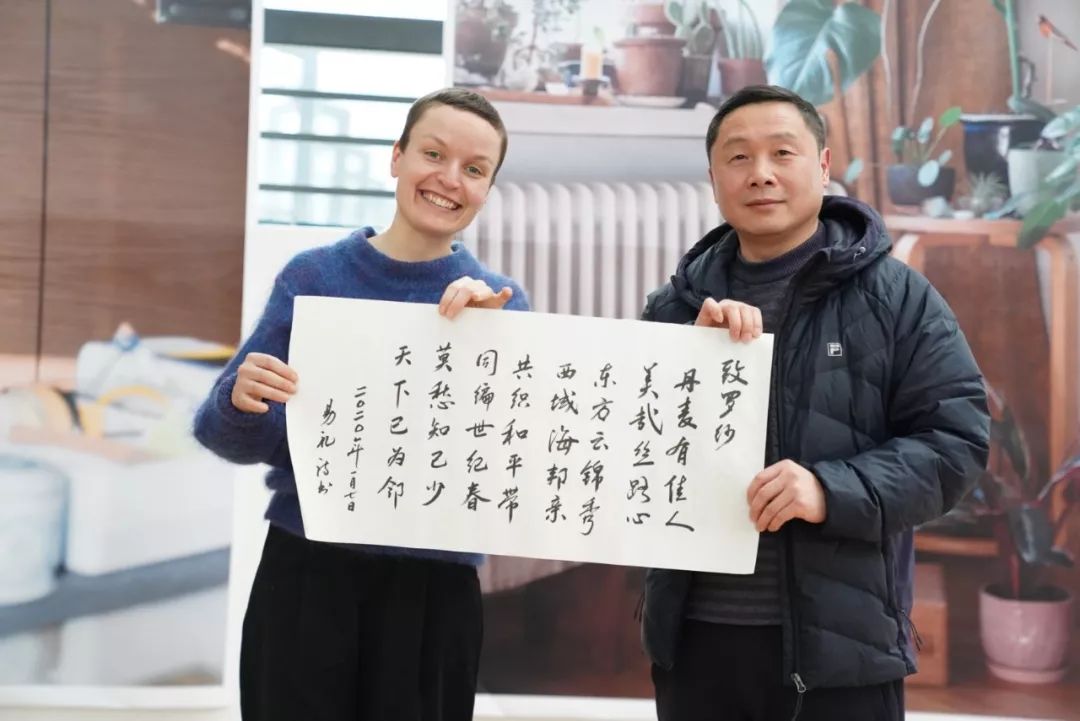 致罗纱
丹麦有佳人
美哉丝路心
东方云锦秀
西域海邦亲
共织和平带
同编世纪春
莫愁知己少
天下已为邻
二〇二〇年一月七日
易礼诗书